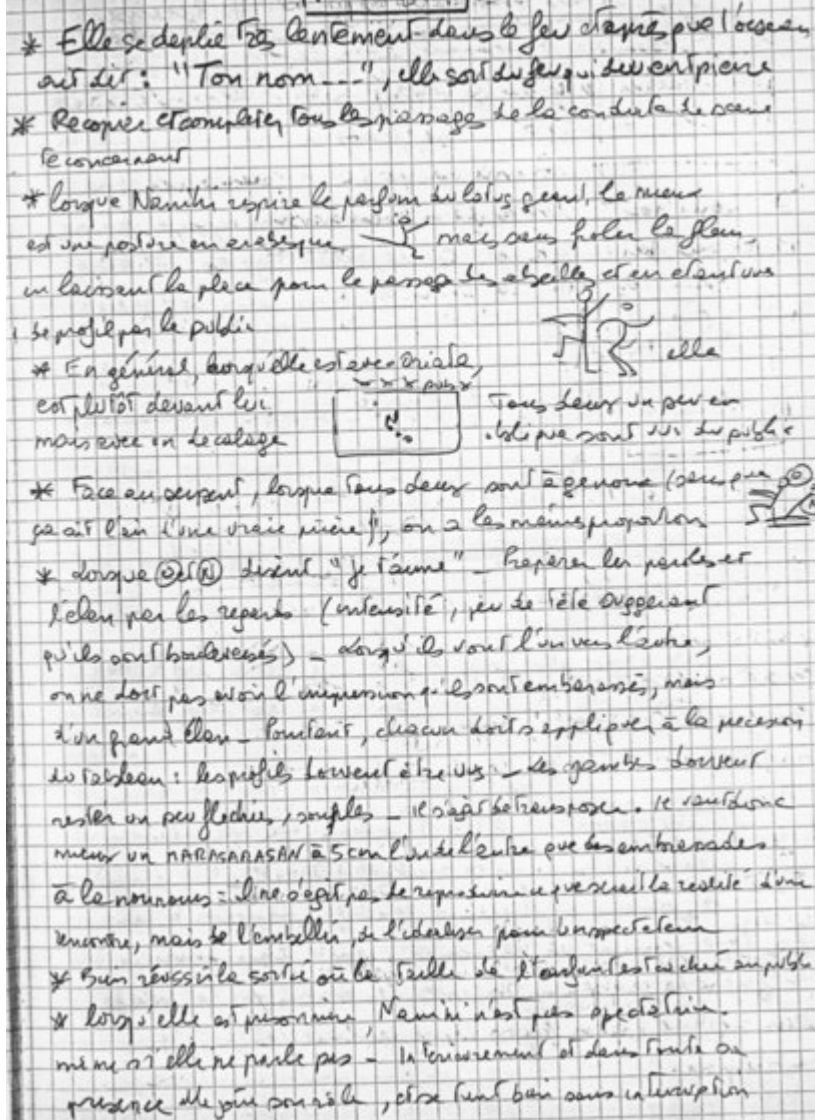 * Elle se déplie très lentement dans le feu d'après que l'oiseau
ait dit : "Ton nom ---", elle sort du feu qui devient pierre
* Recopier et compléter tous les passages de la conduite de scène
te concernant
* lorsque Namihi respire le parfum du lotus géant, le mieux
est une posture en arabesque mais sans froler la fleur,
en laissant la place pour le passage des abeilles et en étant vue
de profil par le public
elle
* En général, lorsqu'elle est avec
est plutôt devant lui
mais avec un décalage
x x x pub x
Tous deux un peu en
oblique sont vus du public
* Face au serpent, lorsque tous deux sont à genoux (sans que
ça ait l'air d'une vraie prière), on a les mêmes proportions
* Lorsque (O) et (N) disent "je t'aime" - Préparer les paroles et
l'élan par les regards (intensité, jeu de tête suggérant
qu'ils sont bouleversés) - Lorsqu'ils vont l'un vers l'autre,
on ne doit pas avoir l'impression qu'ils sont embarassés, mais
d'un grand élan - Pourtant, chacun doit s'appliquer à la précision
du tableau : les profils doivent être vus - Les jambes doivent
rester un peu fléchies, souples - il s'agit de transposer. Il vaut donc
mieux un MARASARASAN à 5 cm l'un de l'autre que des embrassades
à la nounours : il ne s'agit pas de reproduire ce que serait la réalité d'une
rencontre, mais de l'embellir, de l'idéaliser pour le spectateur
* Bien réussir la sortie où la taille de l'enfant est caché au public
* lorsqu'elle est prisonnière, Namihi n'est pas spectatrice.
même si elle ne parle pas - Intérieurement et dans toute sa
présence elle joue son rôle, et se tient bien sans interruption